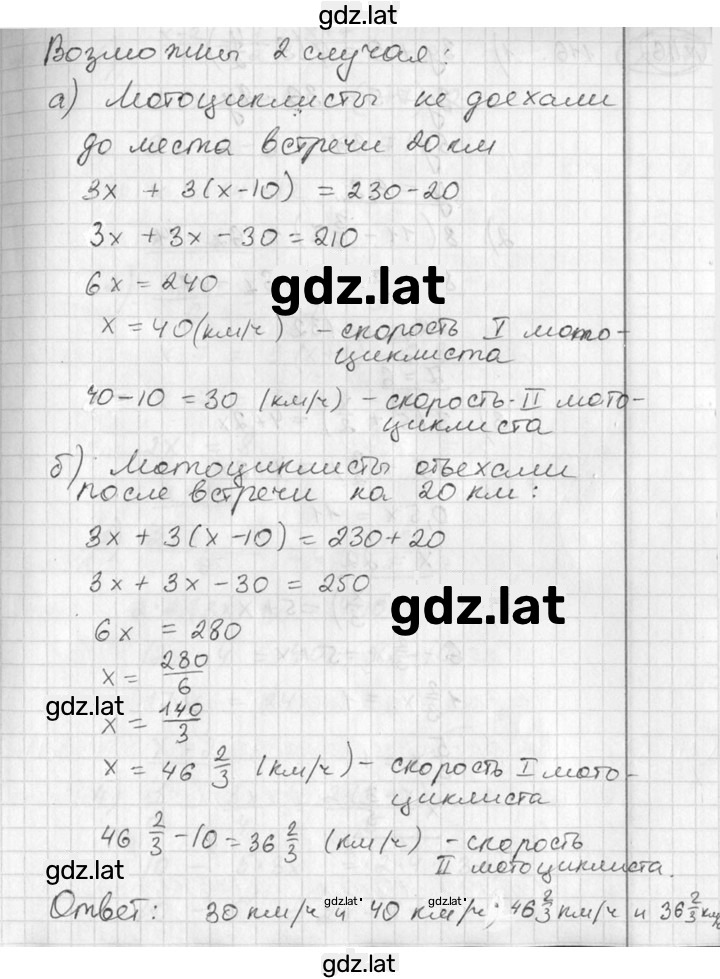 gdz.lat
Возможны 2 случая:
а) Мотоциклисты не доехали
до места встречи 20 км
3x + 3(x-10) = 230-20
3x + 3x - 30 = 210
6x = 240
gdz.lat
x = 40 (км/ч) - скорость I мото-
циклиста
40-10 = 30 (км/ч) - скорость II мото-
циклиста
б) Мотоциклисты отъехали
после встречи на 20 км:
3x + 3(x-10) = 230+20
3x + 3x - 30 = 250
gdz.lat
6x = 280
x = 280/6
gdz.lat
x = 140/3
x = 46 2/3 (км/ч) - скорость I мото-
циклиста
46 2/3 - 10 = 36 2/3 (км/ч) - скорость
II мотоциклиста.
gdz.lat
gdz.lat gdz.lat
Ответ: 30 км/ч и 40 км/ч; 46 2/3 км/ч и 36 2/3 км/ч
gdz.lat